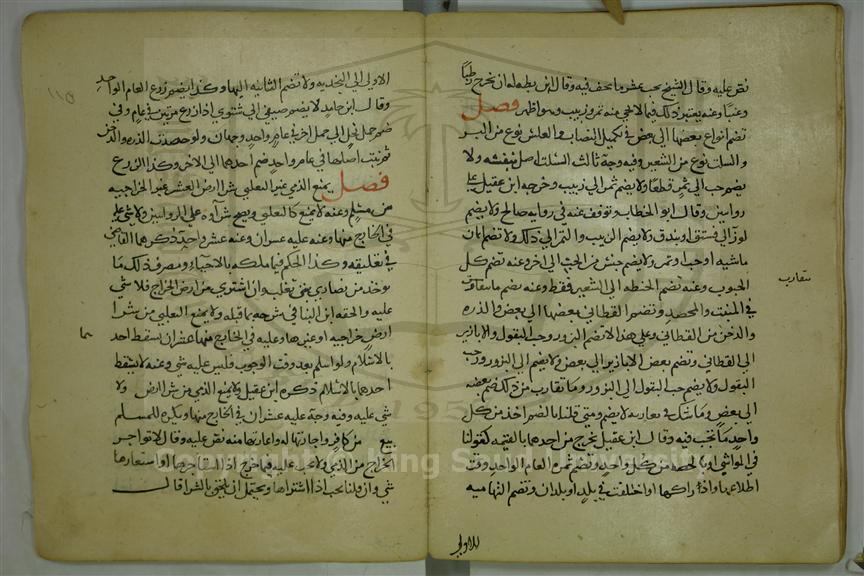 نص عليه وقال الشيخ يجب عشر ما يجف فيه وقال ان يخرج رطبا
وعنبا وعنه يعتبر ذلك فيما لا يجئ منه تمر وزبيب وهو اظهر فصل
تضم انواع بعضها الى بعض في تكميل النصاب والعلس نوع من البر
والسلت نوع من الشعير وفيه وجه ثالث السلت اصل بنفسه ولا
يضم حب الى ثمر قطعا ولا يضم تمر الى زبيب وخرجه ابن عقيل على
روايتين وقال ابو الخطاب وتوقف عنه في رواية صالح ولا يضم
لوز الى فستق او بندق ولا يضم الزبيب والتمر الى ذلك ولا تضم اثمان
ماشيه او حب او تمر ولا يضم جنس من الحب الى اخر وعنه تضم كل
الحبوب وعنه تضم الحنطه الى الشعير فقط وعنه يضم ما يتقارب
متقارب
في المنبت والمحصد وتضم القطاني بعضها الى بعض والذره
والدخن من القطاني وعلى هذا لا تضم البزور وحب البقول والابازير
الى القطاني وتضم بعض الابازير الى بعض ولا يضم الى البزور وحب
البقول ولا يضم حب البقول الى البزور وما تقارب من ذلك ضم بعضه
الى بعض وما شك في تقاربه لا يضم ومتى قلنا بالضم اخذ من كل
واحد ما يجب فيه وقال ابن عقيل يخرج من احدها بالقيمه كقولنا
في المواشي او بالحصه من كل واحد وتضم ثمره العام الواحد وقت
اطلاعها وادراكها او اختلفت في بلد او بلدان وتضم التهاميه
للاولى
١١٥
الاولى الى النجديه ولا تضم الثانيه اليها وكذا يضم زرع العام الواحد
وقال ابن حامد لا يضم صيفي الى شتوي اذا زرع مرتين في عام وفي
ضم حمل نخل الى حمل اخر في عام واحد وجهان ولو حصدت الذره والدخن
ثم نبت اصلها في عام واحد ضم احدهما الى الاخر وكذا الزرع
فصل يمنع الذمي غير التغلبي شرا ارض العشر غير الخراجيه
من مسلم وعنه لا يمنع كالتغلبي ويصح شراه على الروايتين ولا شي عليه
في الخارج منها وعنه عليه عشران وعنه عشر واحد ذكرهما القاضي
في تعليقه وكذا الحكم فيما ملكه بالاحياء ومصرف ذلك ما
يوخذ من نصارى بني تغلب وان اشترى من ارض الخراج فلا شي
عليه والحقه ابن البنا في شرحه بما قبله ولا يمنع التغلبي من شرا
ارض خراجيه او غيرها وعليه في الخارج منها عشران يسقط احد
هما
بالاسلام ولو اسلم بعد وقت الوجوب فليس عليه شي وعنه لا يسقط
احدهما بالاسلام ذكره ابن عقيل ولا يمنع الذمي من شرا ارض ولا
شي عليه وفيه وجه عليه عشران في الخارج منها ويكره للمسلم
بيع من كافر واجارتها له واعارتها منه نص عليه وقال لا تواجر
الخراج من الذمي ولا يجب عليه فيما خرج اذا استاجرها او استعارها
شي وان قلنا يجب اذا اشتراها ويحتمل ان يلحق بالشرا قال